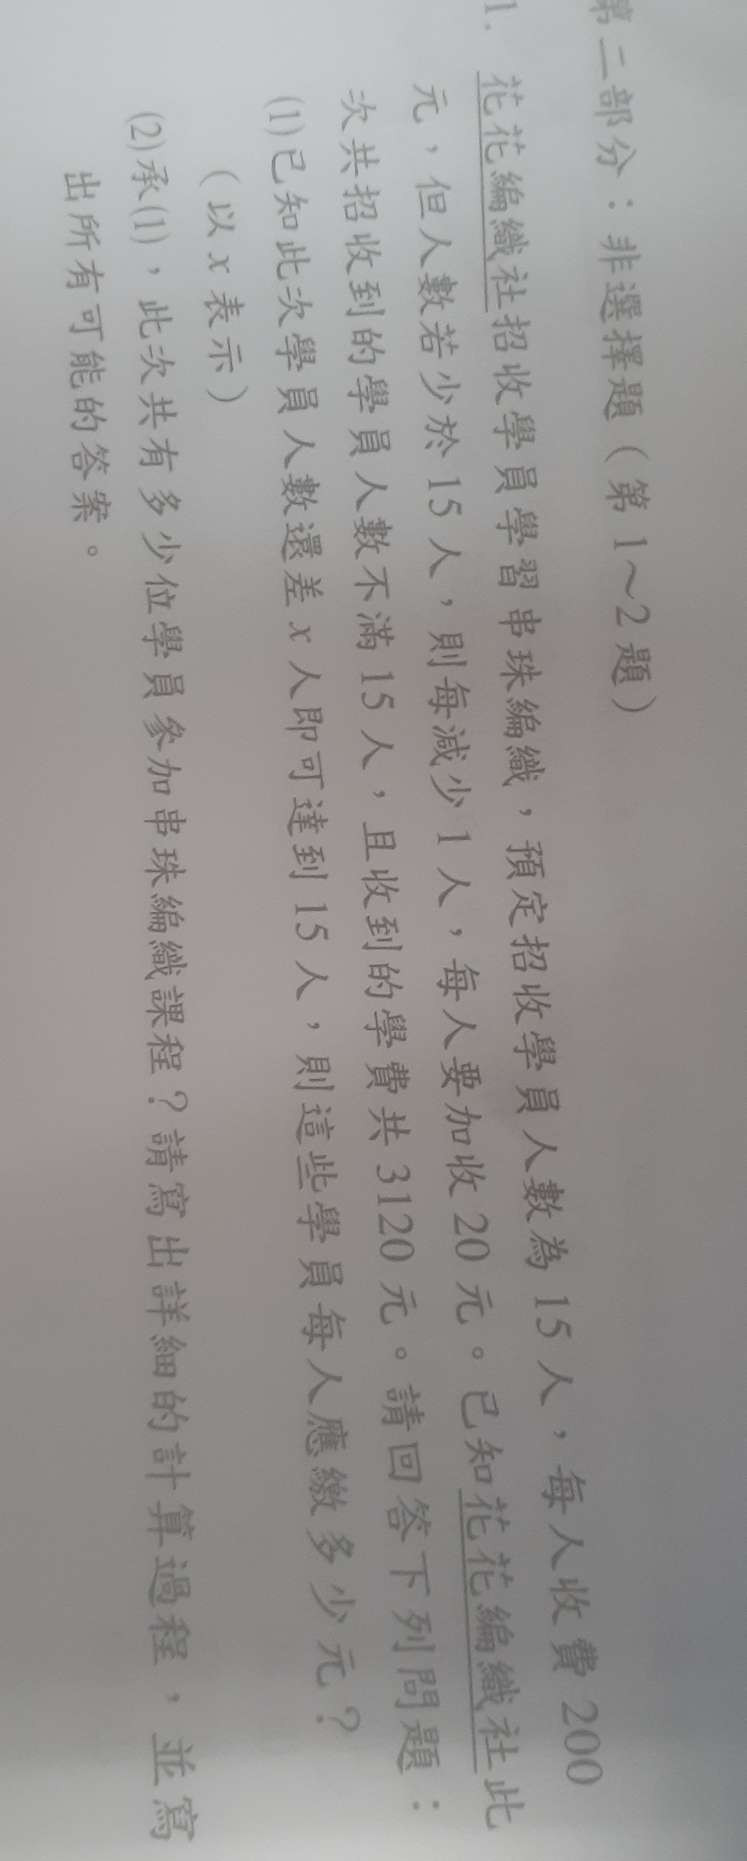 第二部分：非選擇題（第 1～2 題）
1. 花花編織社招收學員學習串珠編織，預定招收學員人數為 15 人，每人收費 200
元，但人數若少於 15 人，則每減少 1 人，每人要加收 20 元。已知花花編織社此
次共招收到的學員人數不滿 15 人，且收到的學費共 3120 元。請回答下列問題：
(1)已知此次學員人數還差 x 人即可達到 15 人，則這些學員每人應繳多少元？
（以 x 表示）
(2)承(1)，此次共有多少位學員參加串珠編織課程？請寫出詳細的計算過程，並寫
出所有可能的答案。